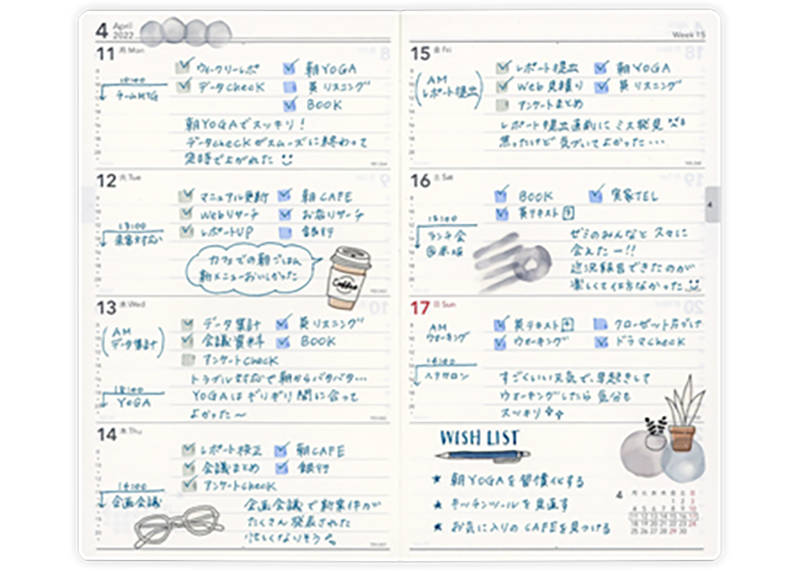 4 April 2022
11 月 Mon
10:00
チームMTG
ウィークリーレポ
朝YOGA
データCHECK
英リスニング
BOOK
朝YOGAでスッキリ!
データCHECKがスムーズに終わって
定時であがれた
12 火 Tue
13:00
マニュアル更新
朝CAFE
Webリサーチ
お店リサーチ
レポートUP
銀行
カフェでの朝ごはん
朝メニューおいしかった
Coffee
13 水 Wed
AM
データ集計
データ集計
英リスニング
会議資料
BOOK
アンケートCHECK
トラブル対応で朝からバタバタ…
YOGAはギリギリ間に合って
よかった〜
18:00
YOGA
14 木 Thu
レポート校正
朝CAFE
会議まとめ
銀行
アンケートCHECK
14:00
企画会議
企画会議で新案件が
たくさん発表された
忙しくなりそう
Week 15
15 金 Fri
AM
レポート提出
レポート提出
朝YOGA
Web見積り
英リスニング
アンケートまとめ
レポート提出直前にミス発見
焦ったけど気づいてよかった…
16 土 Sat
BOOK
実家TEL
英テキスト
ランチ会
ゼミのみんなと久々に
会えたー!!
近況報告できたのが
楽しくて仕方なかった
4
17 日 Sun
AM
ウォーキング
英テキスト
クローゼット片づけ
ウォーキング
ドラマCHECK
すごくいい天気で、早起きして
ウォーキングしたら気分も
スッキリ
WISH LIST
★ 朝YOGAを習慣化する
★ キッチンツールを見直す
★ お気に入りのCAFEを見つける
4 月 火 水 木 金 土 日
1 2 3
4 5 6 7 8 9 10
11 12 13 14 15 16 17
18 19 20 21 22 23 24
25 26 27 28 29 30